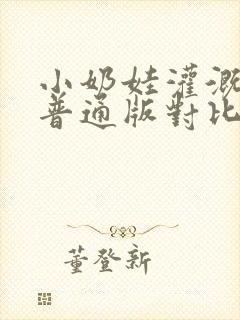 小奶娃灌溉
普通版對比
董登新